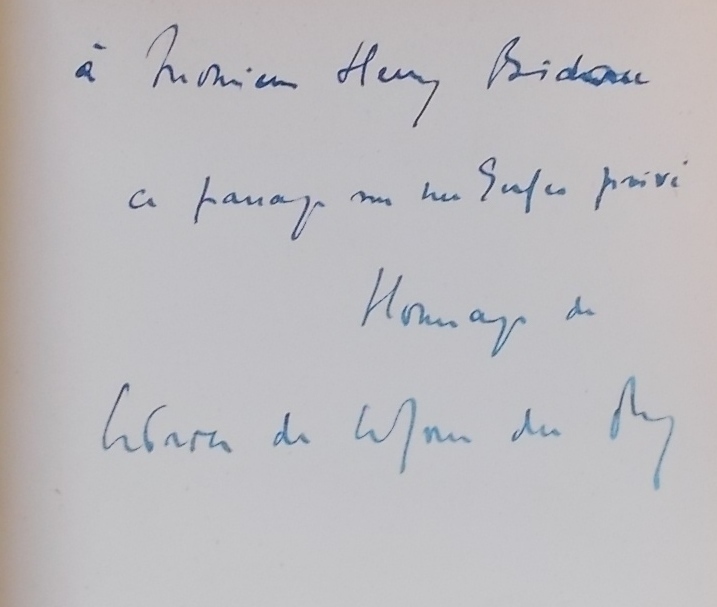 à Monsieur Henry Bidou
ce passage sur un Enfer privé
Hommage de
de du